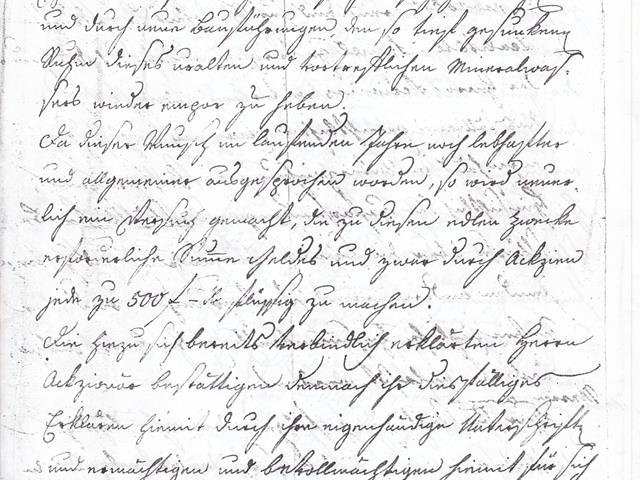 und durch neue Bauführungen, den so tief gesunkenen
Ruhm dieses uralten und vortrefflichen Mineralwas-
sers wieder empor zu heben.
Da dieser Wunsch im laufenden Jahre noch lebhafter
und allgemeiner ausgesprochen worden, so wird neuer-
lich ein Versuch gemacht, die zu diesem edlen Zwecke
erforderliche Summe Geldes und zwar durch Ackzien
jede zu 500 f flüssig zu machen.
Die hiezu sich bereits verbindlich erklärten Herrn
Ackzionär bestättigen demnach ihr diesfälliges
Erklären hiemit durch ihre eigenhändige Unterschrift
und ermächtigen und bevollmächtigen hiemit für sich